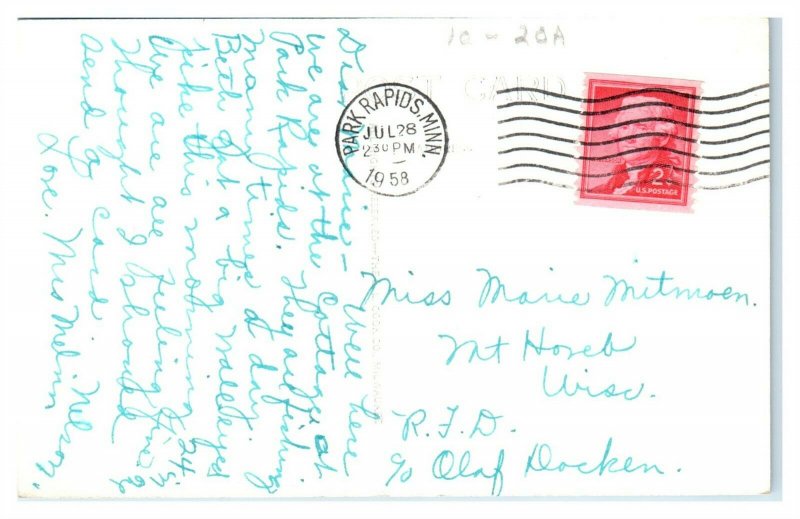 10 - 20A
POST CARD
PARK RAPIDS, MINN.
JUL 28
230 PM
1958
2¢
U.S. POSTAGE
Dear Marie - Well here
we are at the Cottage at
Park Rapids. They are fishing
many times a day.
Beth got a big Walleyed
Pike this morning 24 in
We are all feeling fine &
thought I should
send a card
Love. Mrs Melvin Nelson.
Miss Marie Mitmoen.
Mt Horeb
Wisc.
R.F.D.
c/o Olaf Docken.